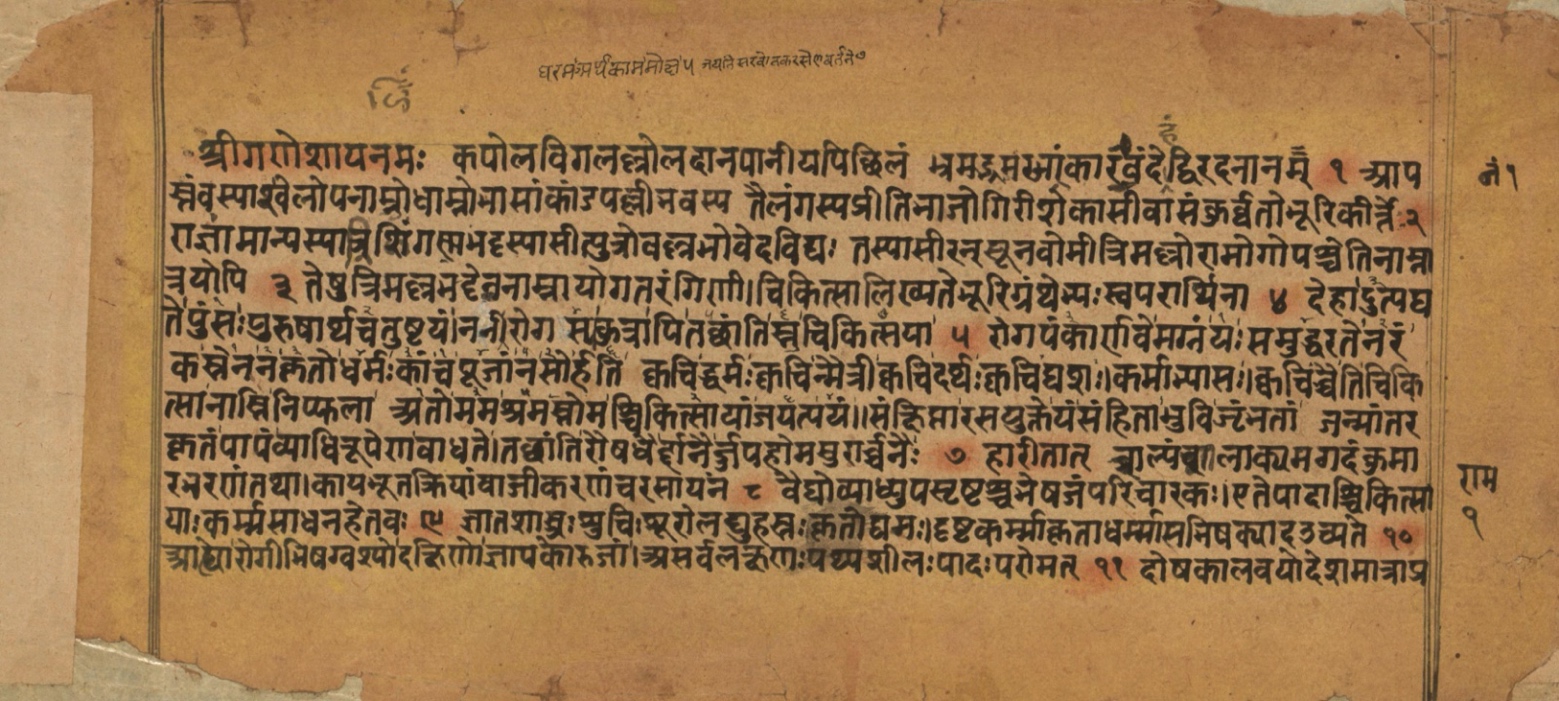 धरमःअर्थकाममोक्ष ५
श्रीगणेशायनमः कपोलविगलल्लोलदानपानीयपिछिलं भ्रमद्भ्रमरझांकारवंदेद्विरदनाननम् १ आप
तैलंगस्यप्रीतिभाजोगिरीशेकासीवासंकुर्व्वतोभूरिकीर्त्तेः २
राज्ञांमान्यस्या त्रि शिंगल्लभट्टस्यासीत्पुत्रोवल्लभोवेदविद्यः तस्यासीरन्सूनवोमीत्रिमल्लोरामोगोपश्चेतिनाम्ना
त्रयोपि ३ तेषुत्रिमल्लभट्टेननाम्नायोगतरंगिणी।चिकित्सालिख्यतेभूरिग्रंथेभ्यःस्वपरार्थिना ४ देहादुत्पद्य
तेपुंसःपुरुषार्थचतुष्टयं।ननीरोग स्यकुत्रापितछांतिस्नुचिकित्सया ५ रोगपंकार्णवेमग्नंयःसमुद्धरतेनरं
कस्तेननकृतोधर्मःकांचपूजांनसोर्हति क्वचिद्धर्मःक्वचिन्मैत्रीक्वचिदर्थःक्वचिद्यशः।कर्माभ्यासः।क्वचिच्चेतिचिकि
त्सानास्तिनिष्फला अतोममश्रमस्तोमश्चिकित्सायांजयत्ययं।।संक्षिप्तारसयुक्तेयंसंहिताभुविजृंभतां जन्मांतर
कृतंपापंव्याधिरूपेणवाधते।तछांतिरौषधैर्द्दानैर्ज्जपहोमसुरार्च्चनैः ७ हारीतात् शल्यंशालाक्यमगदंकुमा
रभरणंतथा।कायभूतक्रियांवाजीकरणंचरसायनं ८ वैद्योव्याध्युपसृष्टश्चभेषजंपरिचारकः।एतेपादाश्चिकित्सा
याःकर्म्मसाधनहेतवः ९ ज्ञातशास्त्रःशुचिःशूरोलघुहस्तःकृतोद्यमः।दृष्टकर्म्माकृताधर्म्मासभिषक्पादउच्यते १०
आढ्योरोगीभिषग्वश्योदक्षिणोज्ञापकोरुजां।असर्वलक्षणःपथ्यशीलःपादःपरोमत् ११ दोषकालवयोदेशमात्राप्र
राम
१